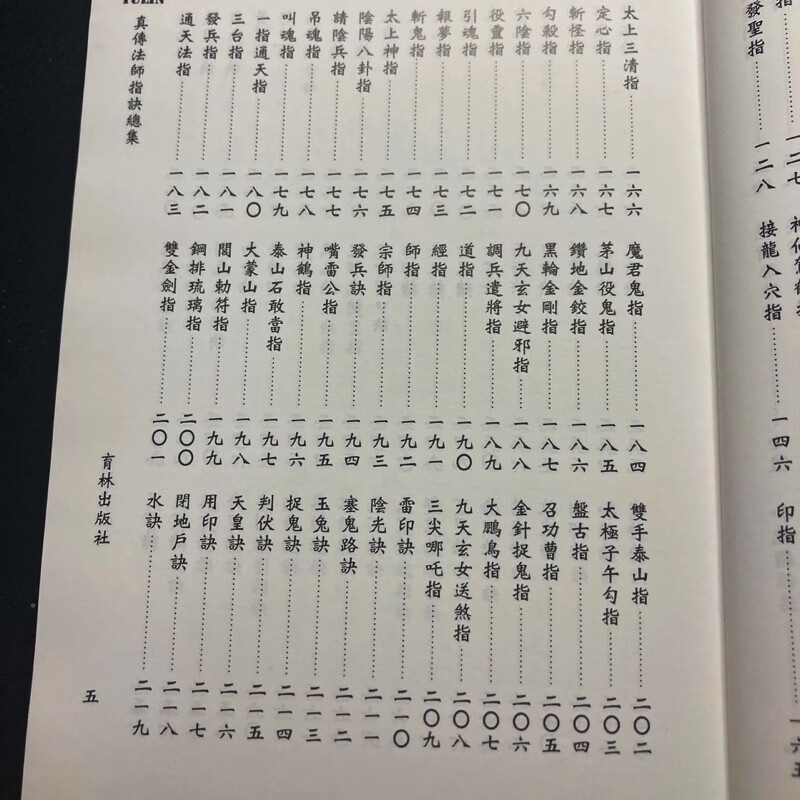 一二七
發聖指……一二八
接龍入穴指……一四六
印指……一六五
YULIN
太上三清指……一六六
定心指……一六七
斬怪指……一六八
勾殺指……一六九
六陰指……一七〇
役靈指……一七一
引魂指……一七二
報夢指……一七三
斬鬼指……一七四
太上神指……一七五
陰陽八卦指……一七六
請陰兵指……一七七
吊魂指……一七八
叫魂指……一七九
一指通天指……一八〇
三台指……一八一
發兵指……一八二
通天法指……一八三
魔君鬼指……一八四
茅山役鬼指……一八五
鑽地金鉸指……一八六
黑輪金剛指……一八七
九天玄女避邪指……一八八
調兵遣將指……一八九
道指……一九〇
經指……一九一
師指……一九二
宗師指……一九三
發兵訣……一九四
嘴雷公指……一九五
神鶴指……一九六
泰山石敢當指……一九七
大蒙山指……一九八
閭山勅符指……一九九
鋼排琉璃指……二〇〇
雙金劍指……二〇一
雙手泰山指……二〇二
太極子午勾指……二〇三
盤古指……二〇四
召功曹指……二〇五
金針捉鬼指……二〇六
大鵬鳥指……二〇七
九天玄女送煞指……二〇八
三尖哪吒指……二〇九
雷印訣……二一〇
陰光訣……二一一
塞鬼路訣……二一二
玉兔訣……二一三
捉鬼訣……二一四
判伏訣……二一五
天皇訣……二一六
用印訣……二一七
閉地戶訣……二一八
水訣……二一九
真傳法師指訣總集
育林出版社
五